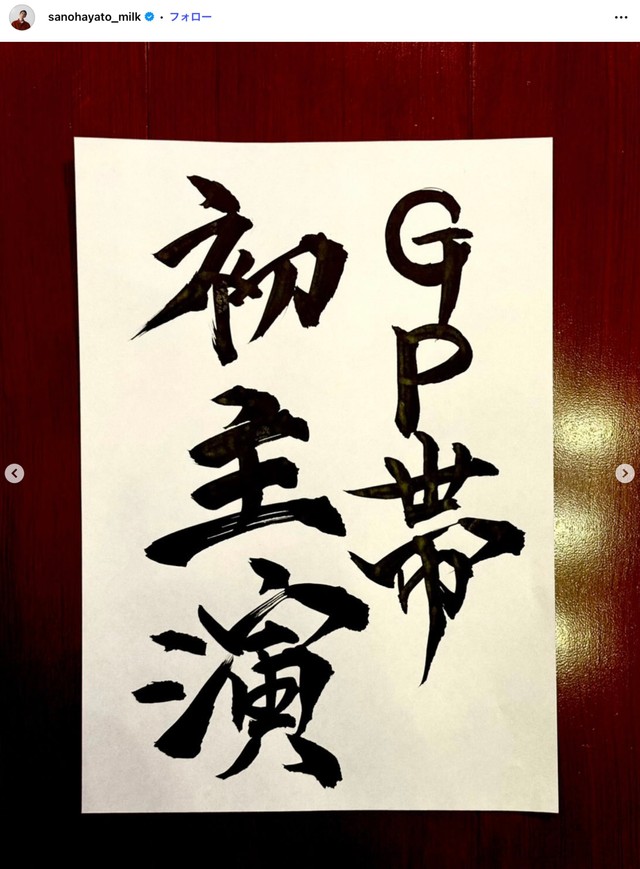 sanohayato_milk • フォロー
GP帯
初主演